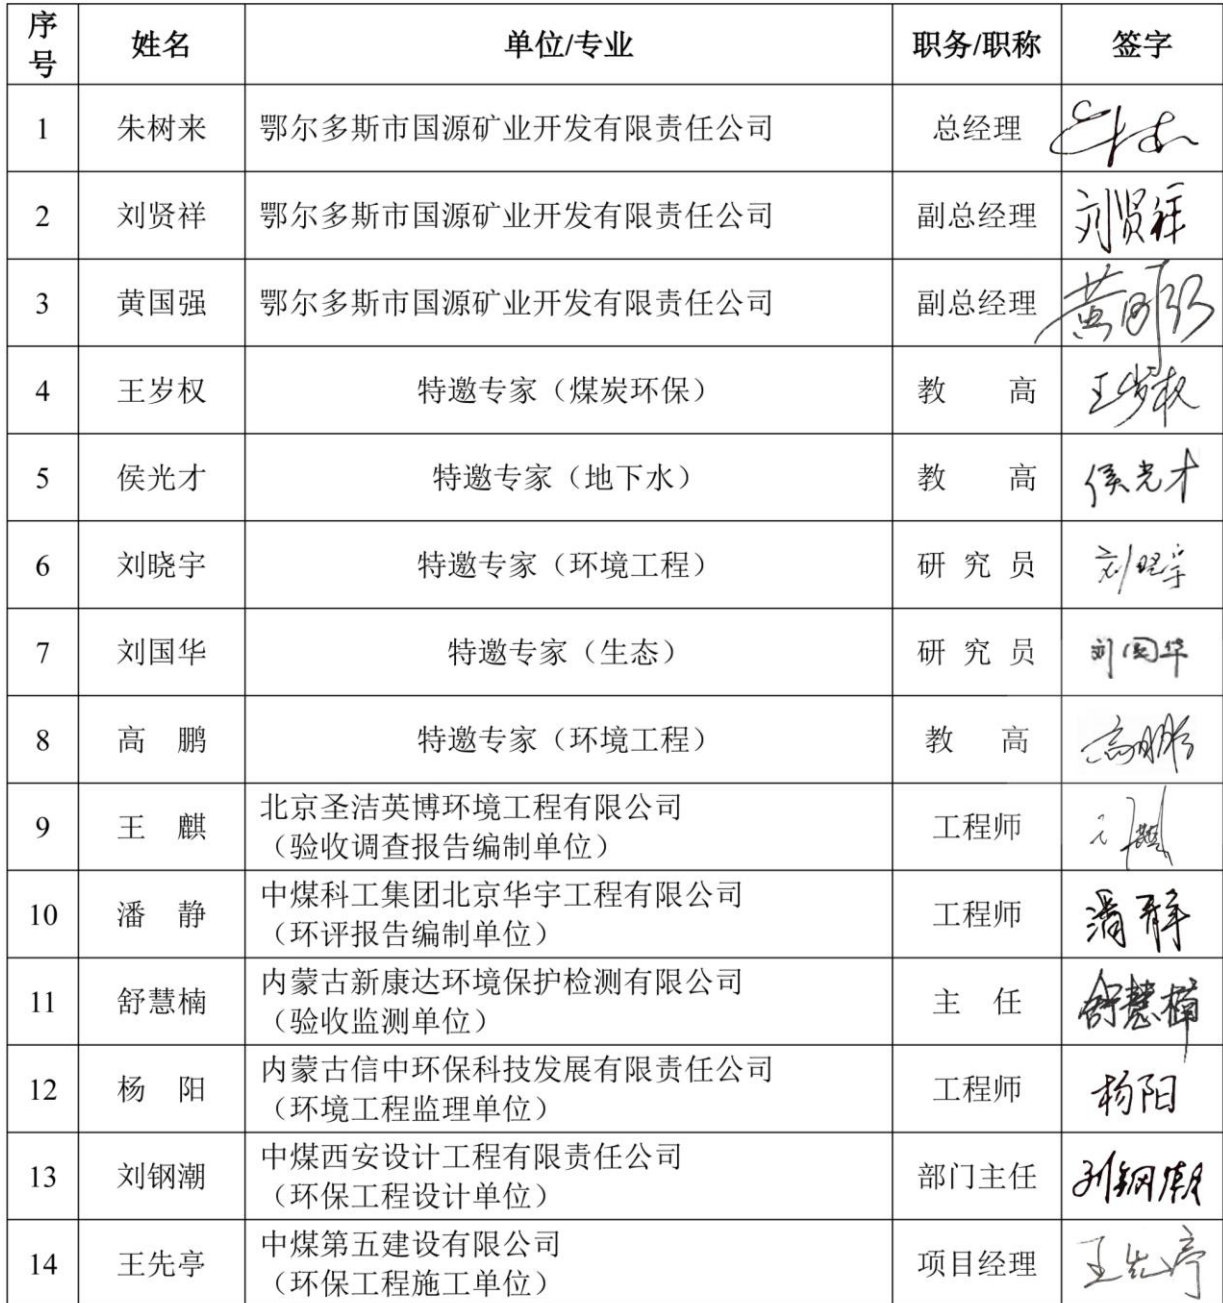 序号 姓名 单位/专业 职务/职称 签字
1 朱树来 鄂尔多斯市国源矿业开发有限责任公司 总经理
2 刘贤祥 鄂尔多斯市国源矿业开发有限责任公司 副总经理 刘贤祥
3 黄国强 鄂尔多斯市国源矿业开发有限责任公司 副总经理 黄国强
4 王岁权 特邀专家（煤炭环保） 教 高 王岁权
5 侯光才 特邀专家（地下水） 教 高 侯光才
6 刘晓宇 特邀专家（环境工程） 研 究 员 刘晓宇
7 刘国华 特邀专家（生态） 研 究 员 刘国华
8 高 鹏 特邀专家（环境工程） 教 高 高鹏
9 王 麒 北京圣洁英博环境工程有限公司 工程师 王麒
（验收调查报告编制单位）
10 潘 静 中煤科工集团北京华宇工程有限公司 工程师 潘静
（环评报告编制单位）
11 舒慧楠 内蒙古新康达环境保护检测有限公司 主 任 舒慧楠
（验收监测单位）
12 杨 阳 内蒙古信中环保科技发展有限责任公司 工程师 杨阳
（环境工程监理单位）
13 刘钢潮 中煤西安设计工程有限责任公司 部门主任 刘钢潮
（环保工程设计单位）
14 王先亭 中煤第五建设有限公司 项目经理 王先亭
（环保工程施工单位）